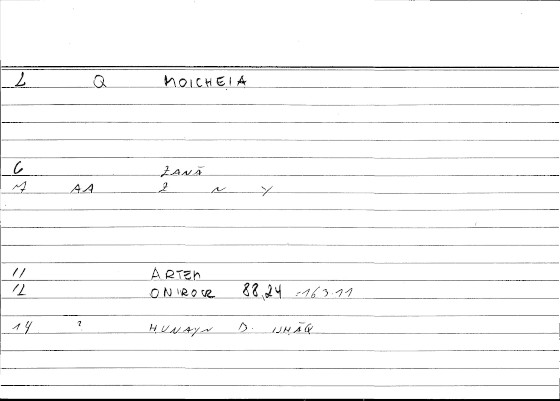 L Q MOICHEIA
6 ZANĀ
7 AA 2 N Y
11 ARTEM
12 ONIROCR 88,24 163.11
14 ? HUNAYN B. ISHĀQ